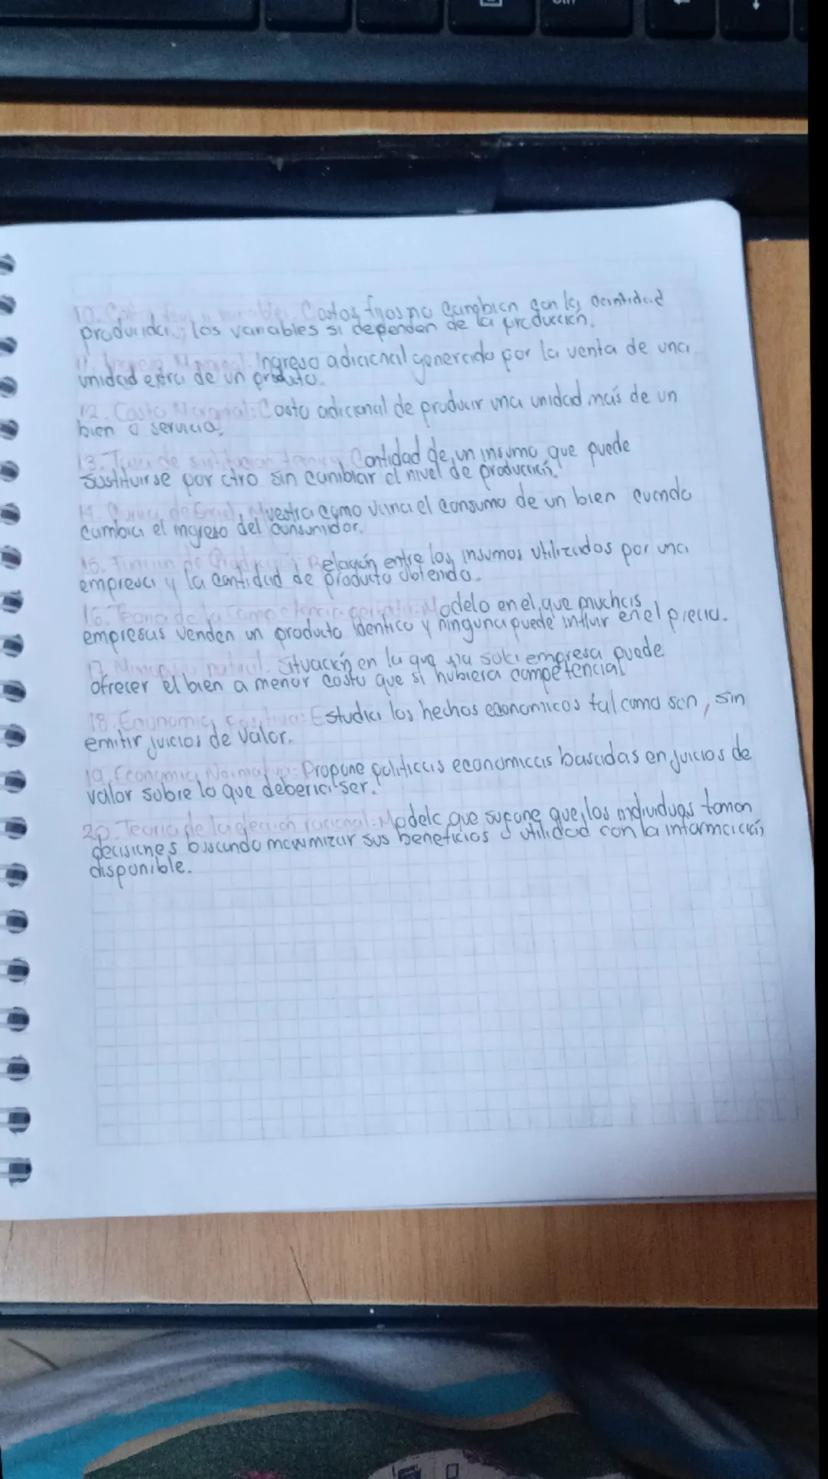 10. Costos fijos y variables: Costos fijos no cambian con la cantidad
producida, los variables si dependen de la producción.
11. Ingreso Marginal: Ingreso adicional generado por la venta de una
unidad extra de un producto.
12. Costo Marginal: Costo adicional de producir una unidad más de un
bien o servicio.
13. Tasa de sustitución Cantidad de un insumo que puede
sustituirse por otro sin cambiar el nivel de producción.
14. Curva de Engel: Muestra como varia el consumo de un bien cuando
cambia el ingreso del consumidor.
15. Función de Producción: Relación entre los insumos utilizados por una
empresa y la cantidad de producto obtenido.
16. Teoria de la competencia perfecta: Modelo en el que muchas
empresas venden un producto identico y ninguna puede influir en el precio.
17. Monopolio natural: Situación en la que una sola empresa puede
ofrecer el bien a menor costo que si hubiera competencia.
18. Economia positiva: Estudia los hechos economicos tal como son, sin
emitir juicios de valor.
19. Economia Normativa: Propone politicas economicas basadas en juicios de
valor sobre lo que deberia ser.
20. Teoria de la elección racional: Modelo que supone que los individuos toman
decisiones buscando maximizar sus beneficios o utilidad con la información
disponible.